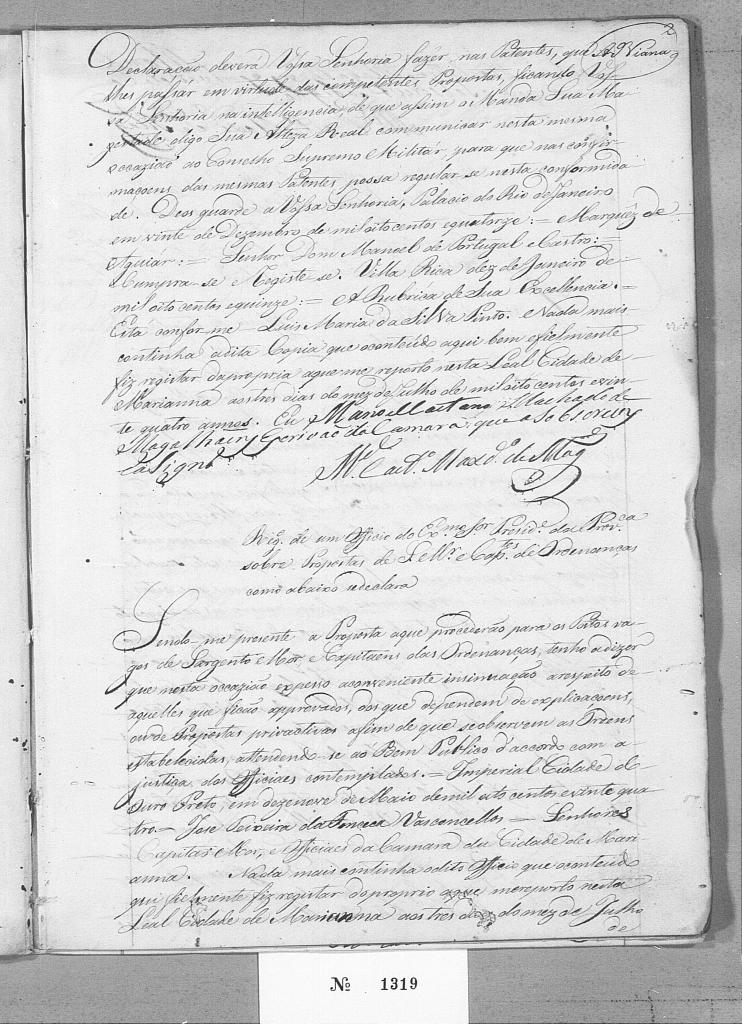 2
AdºViana
Declaração deverá Vossa Senhoria fazer nas Patentes, que
lhes passar em virtude das competentes Propostas, ficando Vos-
sa Senhoria na intelligencia, de que assim o Manda Sua Ma-
gestade digo Sua Alteza Real communicar nesta mesma
occazião ao Conselho Supremo Militar, para que nas confir-
maçoens das mesmas Patentes possa regular se nesta conformida-
de. Deos guarde a Vossa Senhoria, Palacio do Rio de Janeiro
em vinte de Dezembro de mil oito centos equatorze := Marquêz de
Aguiar := Senhor Dom Manoel de Portugal e Castro :=
Cumpra-se Registe se. Villa Rica dez de Janeiro de
mil oito centos equinze := A Rubrica de Sua Excellencia. =
Está conforme Luis Maria da Silva Pinto. eNada mais
continha adita Copia que oconteúdo aqui bem efielmente
fiz registar dapropria aque me reporto nesta Leal Cidade de
Marianna aos tres dias do mez de Julho de mil oito centos evin-
te quatro annos. Eu Manoel Caetano Machado de
Magalhaens Escrivão da Camara que a sobscrevy
easigno
M.el Caet.º Maxd.º de Mag.
Reg.º de um Officio do Ex.mo Sñr Presid.e da Prov.ca
sobre Propostas de S. M.r e Cap.tes de Ordenanças
como abaixo sedeclara
Sendo-me presente a Proposta aque procederão para os Postos va-
gos de Sargento Mor, e Capitaens das Ordenanças, tenho adizer
que nesta occazião expesso aconveniente insinuação arespeito de
aquelles que ficão approvados, dos que dependem de explicacoens,
ou de Propostas privactivas afim de que seobservem as Ordens
estabelecidas, attendendo-se ao Bem Publico d'accordo com a
justiça dos Officiaes contemplados. = Imperial Cidade do
Ouro Preto, em dezenove de Maio demil oito centos evinte qua
tro = José Teixeira da Fonceca Vasconcellos = Senhores
Capitão Mor, e Officiaes da Camara da Cidade de Mari
anna. Nada mais continha odito Officio que oconteúdo
qui fielmente fiz registar do proprio aque mereporto nesta
Leal Cidade de Marianna aos tres dias do mez de Julho
de
Nº 1319